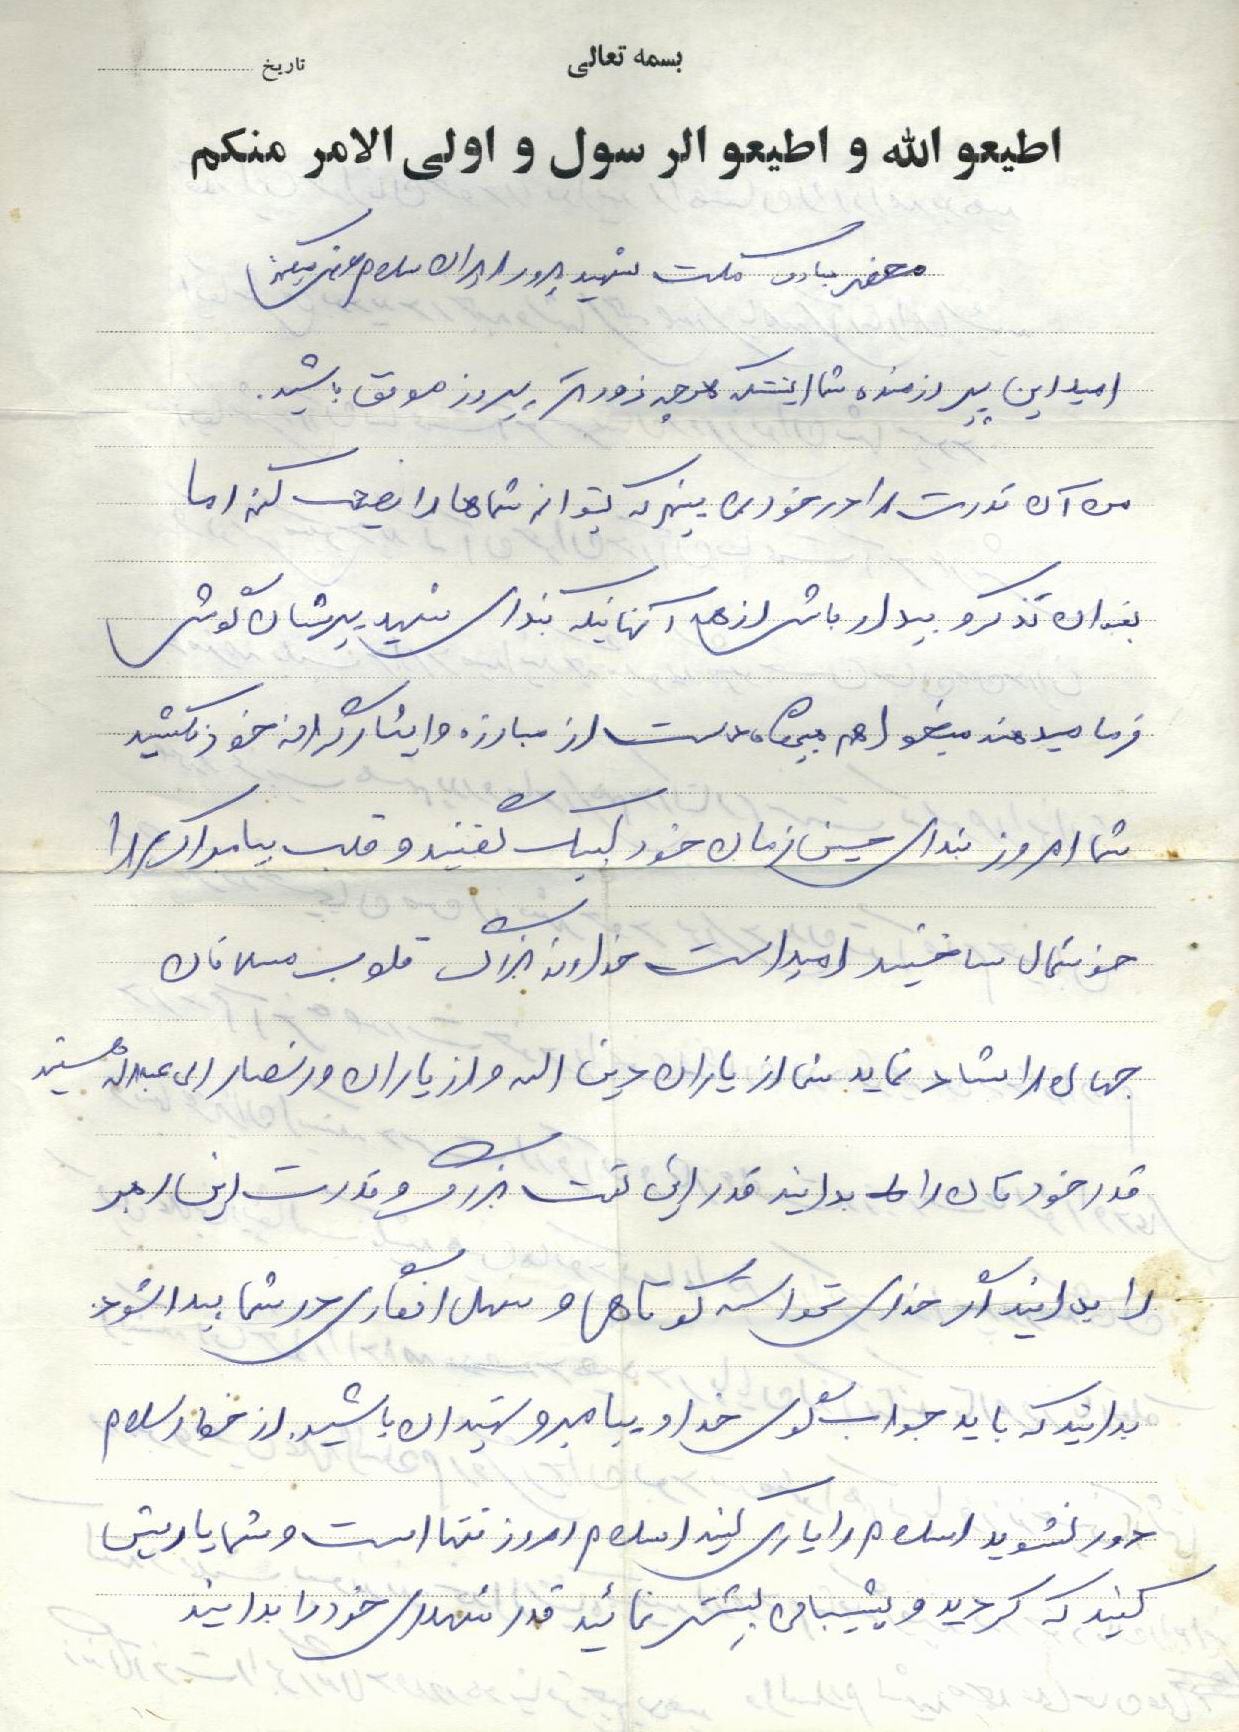 بسمه تعالی
تاریخ
اطیعو الله و اطیعو الرسول و اولی الامر منکم
محضر مبارک ملت شهید پرور ایران سلام عرض میکنم
امید این پیر رزمنده شما اینستکه هرچه زودتر پیروز موفق باشید.
من آن قدرت را در خود نمی بینم که بتوانم شماها را نصیحت کنم اما
بعنوان تذکر و بیدار باش از همه آنهائیکه بندای شهید پیرشان گوش
فرا میدهند میخواهم هیچگاه دست از مبارزه و ایثارگرانه خود نکشید
شما امروز بندای حسین زمان خود لبیک گفتید و قلب پیامبر اکرم را
خوشحال ساختید امید است خداوند بزرگ قلوب مسلمانان
جهان را شاد نماید شما از یاران دین الله و از یاران و انصار ابی عبدالله هستید
قدر خودتان را بدانید قدر این نعمت بزرگ و قدرت این رهبر
را بدانید اگر خدای نخواسته کوتاهی و سهل انگاری در شما پیدا شود
بدانید که باید جواب گوی خدا و پیامبر و شهیدان باشید. از خط اسلام
دور نشوید اسلام را یاری کنید اسلام امروز تنها است و شما یاریش
کنید که کردید و پشیبانی بیشتر نمائید قدر شهدای خود را بدانید